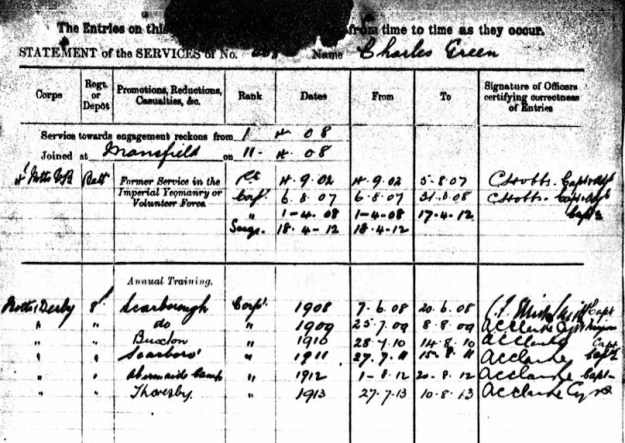 The Entries on this from time to time as they occur.
STATEMENT of the SERVICES of No. Name Charles Green
Corps Regt. or Depôt Promotions, Reductions, Casualties, &c. Rank Dates From To Signature of Officers certifying correctness of Entries
Service towards engagement reckons from 1 4 08
Joined at Mansfield on 11 4 08
Notts Batt Former Service in the Imperial Yeomanry or Volunteer Force Pt 4.9.02 4.9.02 5.8.07 C Hobbs. Capt
Corpl. 6.8.07 6.8.07 31.3.08 C Hobbs. Capt
" 1-4-08 1-4-08 17-4-12 Capt
Sergt. 18-4-12 18-4-12
Annual Training.
Notts & Derby 8 Scarborough Corpl. 1908 7.6.08 20.6.08 Capt
" " do " 1909 25.7.09 8.8.09
" " Buxton " 1910 28.7.10 14.8.10 Capt
" " Scarboro' " 1911 27.7.11 Capt
" " Camp " 1912 1-8-12 Capt
" " Thoresby " 1913 27.7.13 10.8.13